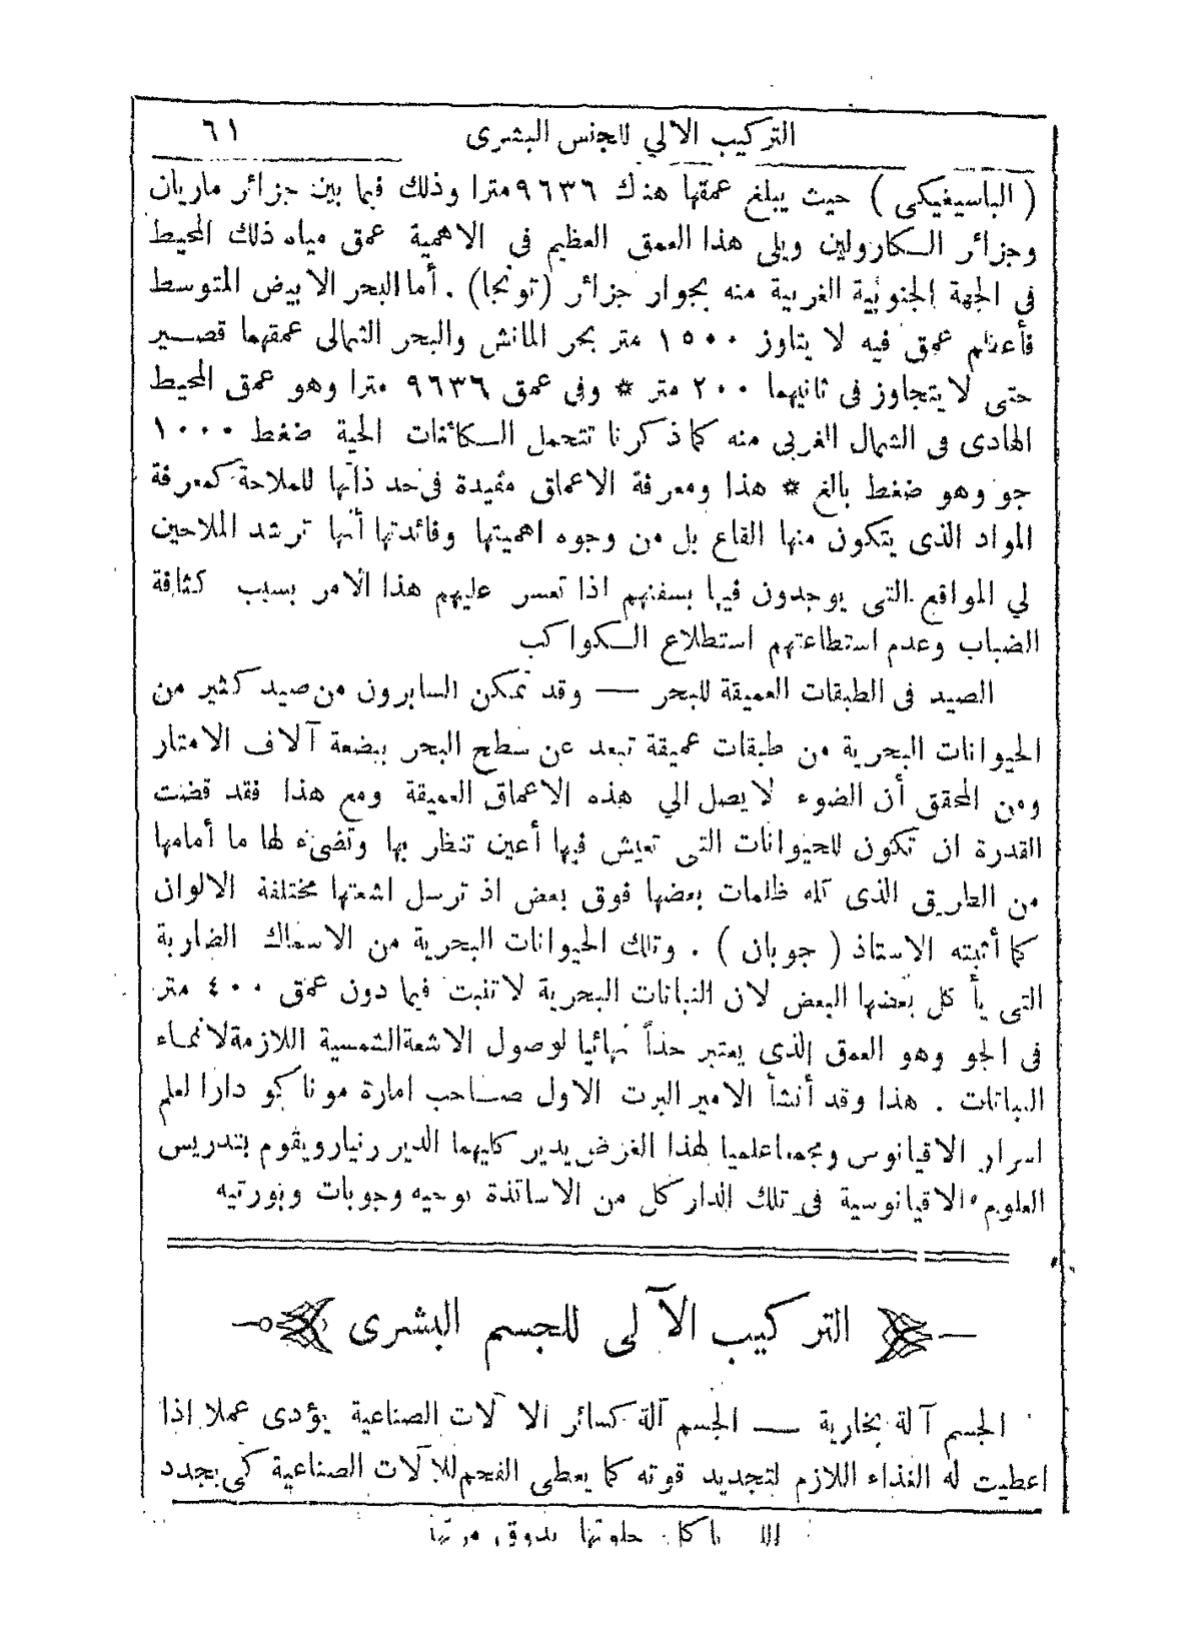 التركيب الالي للجنس البشرى ٦١
( الباسيفيكى ) حيث يبلغ عمقها هناك ٩٦٣٦ مترا وذلك فيما بين جزائر ماريان
وجزائر الكارولين ويلى هذا العمق العظيم فى الاهمية عمق مياه ذلك المحيط
فى الجهة الجنوبية الغربية منه بجوار جزائر (تونجا) . أما البحر الابيض المتوسط
فأعظم عمق فيه لا يتاوز ١٥٠٠ متر بحر المانش والبحر الشمالى عمقهما قصير
حتى لا يتجاوز فى ثانيهما ٢٠٠ متر * وفى عمق ٩٦٣٦ مترا وهو عمق المحيط
الهادى فى الشمال الغربى منه كما ذكرنا تتحمل الكائنات الحية ضغط ١٠٠٠
جو وهو ضغط بالغ * هذا ومعرفة الاعماق مفيدة فى حد ذاتها للملاحة كمعرفة
المواد الذى يتكون منها القاع بل من وجوه اهميتها وفائدتها أنها ترشد الملاحين
لي المواقع التى يوجدون فيها بسفنهم اذا تعسر عليهم هذا الامر بسبب كثافة
الضباب وعدم استطاعتهم استطلاع الكواكب
الصيد فى الطبقات العميقة للبحر — وقد تمكن السابرون من صيد كثير من
الحيوانات البحرية من طبقات عميقة تبعد عن سطح البحر ببضعة آلاف الامتار
ومن المحقق أن الضوء لا يصل الي هذه الاعماق العميقة ومع هذا فقد قضت
القدرة ان تكون للحيوانات التى تعيش فيها أعين تنظر بها وتضىء لها ما أمامها
من الطريق الذى كله ظلمات بعضها فوق بعض اذ ترسل اشعتها مختلفة الالوان
كما أثبته الاستاذ ( جوبان ) . وتلك الحيوانات البحرية من الاسماك الضاربة
التى يأكل بعضها البعض لان النباتات البحرية لا تنبت فيما دون عمق ٤٠٠ متر
فى الجو وهو العمق الذى يعتبر حداً نهائيا لوصول الاشعة الشمسية اللازمة لانماء
النباتات . هذا وقد أنشأ الامير البرت الاول صاحب امارة موناكو دارا لعلم
اسرار الاقيانوس ومجمعا علميا لهذا الغرض يدير كليهما الدير رنيار ويقوم بتدريس
العلوم الاقيانوسية فى تلك الدار كل من الاساتذة وجوبات وبورتيه
التركيب الآلى للجسم البشرى
الجسم آلة بخارية — الجسم آلة كسائر الآلات الصناعية يؤدى عملا اذا
اعطيت له الغذاء اللازم لتجديد قوته كما يعطى الفحم للآلات الصناعية كى يجدد